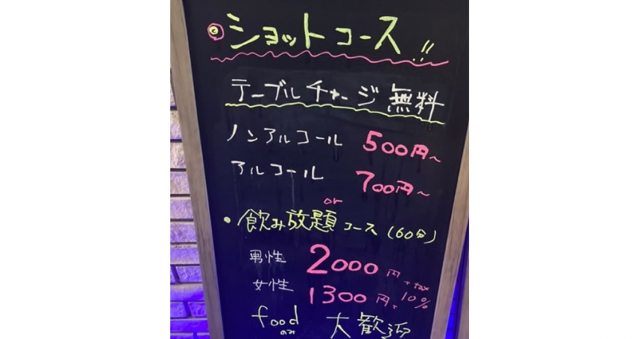 ショットコース!!
テーブルチャージ無料
ノンアルコール 500円~
アルコール 700円~
or
飲み放題コース(60分)
男性 2000円+tax
女性 1300円+10%
food のみ 大歓迎